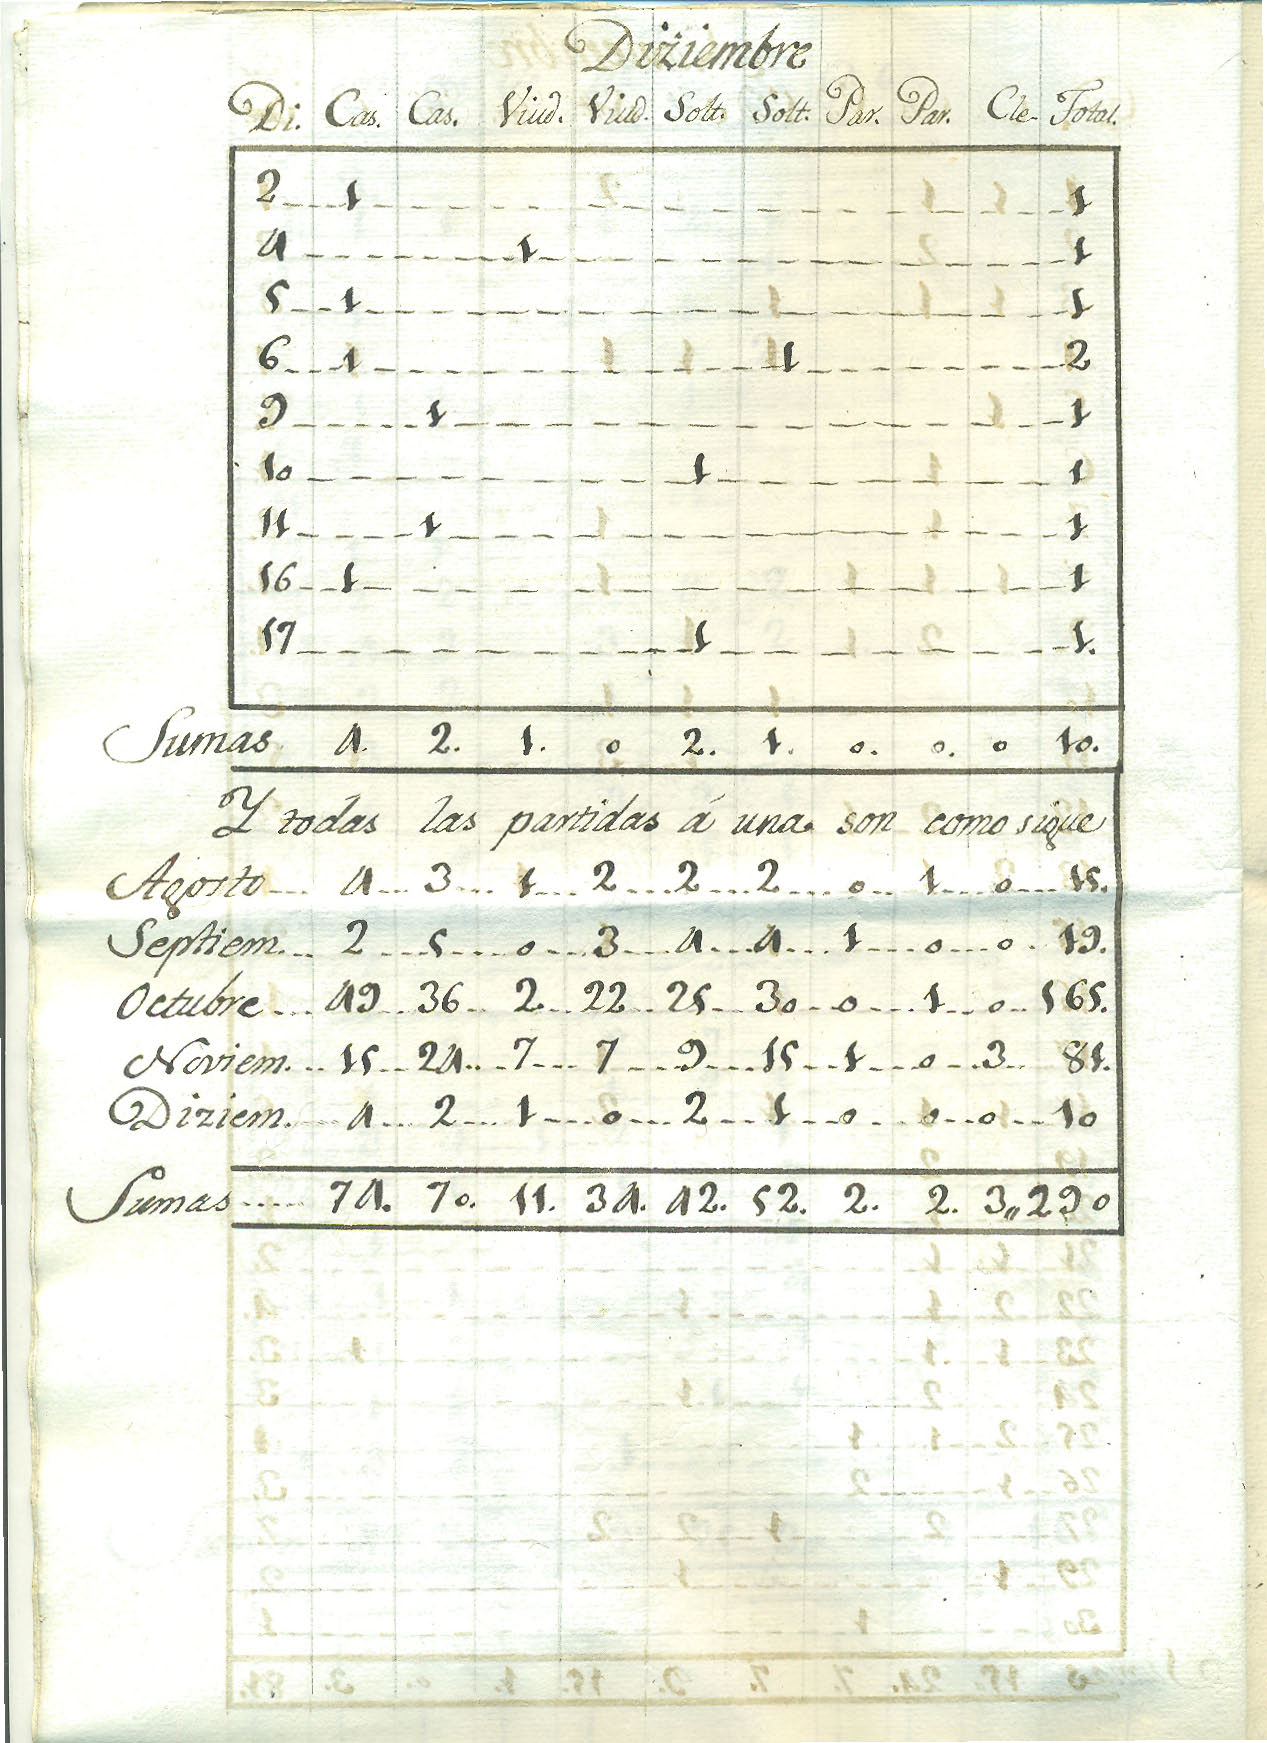 Diziembre
Di. Cas. Cas. Viud. Viud. Solt. Solt. Par. Par. Cle. Total.
2 1 1
4 1 1
5 1 1
6 1 1 2
9 1 1
10 1 1
11 1 1
16 1 1
17 1 1.
Sumas 4. 2. 1. 0 2. 1. 0. 0. 0 10.
Y todas las partidas á una son como sigue
Agosto 4 3 1 2 2 2 0 1 0 15.
Septiem. 2 5 0 3 4 4 1 0 0 19.
Octubre 49 36 2 22 25 30 0 1 0 165.
Noviem. 15 24 7 7 9 15 1 0 3 81.
Diziem. 4 2 1 0 2 1 0 0 0 10
Sumas 74. 70. 11. 34. 42. 52. 2. 2. 3,, 290